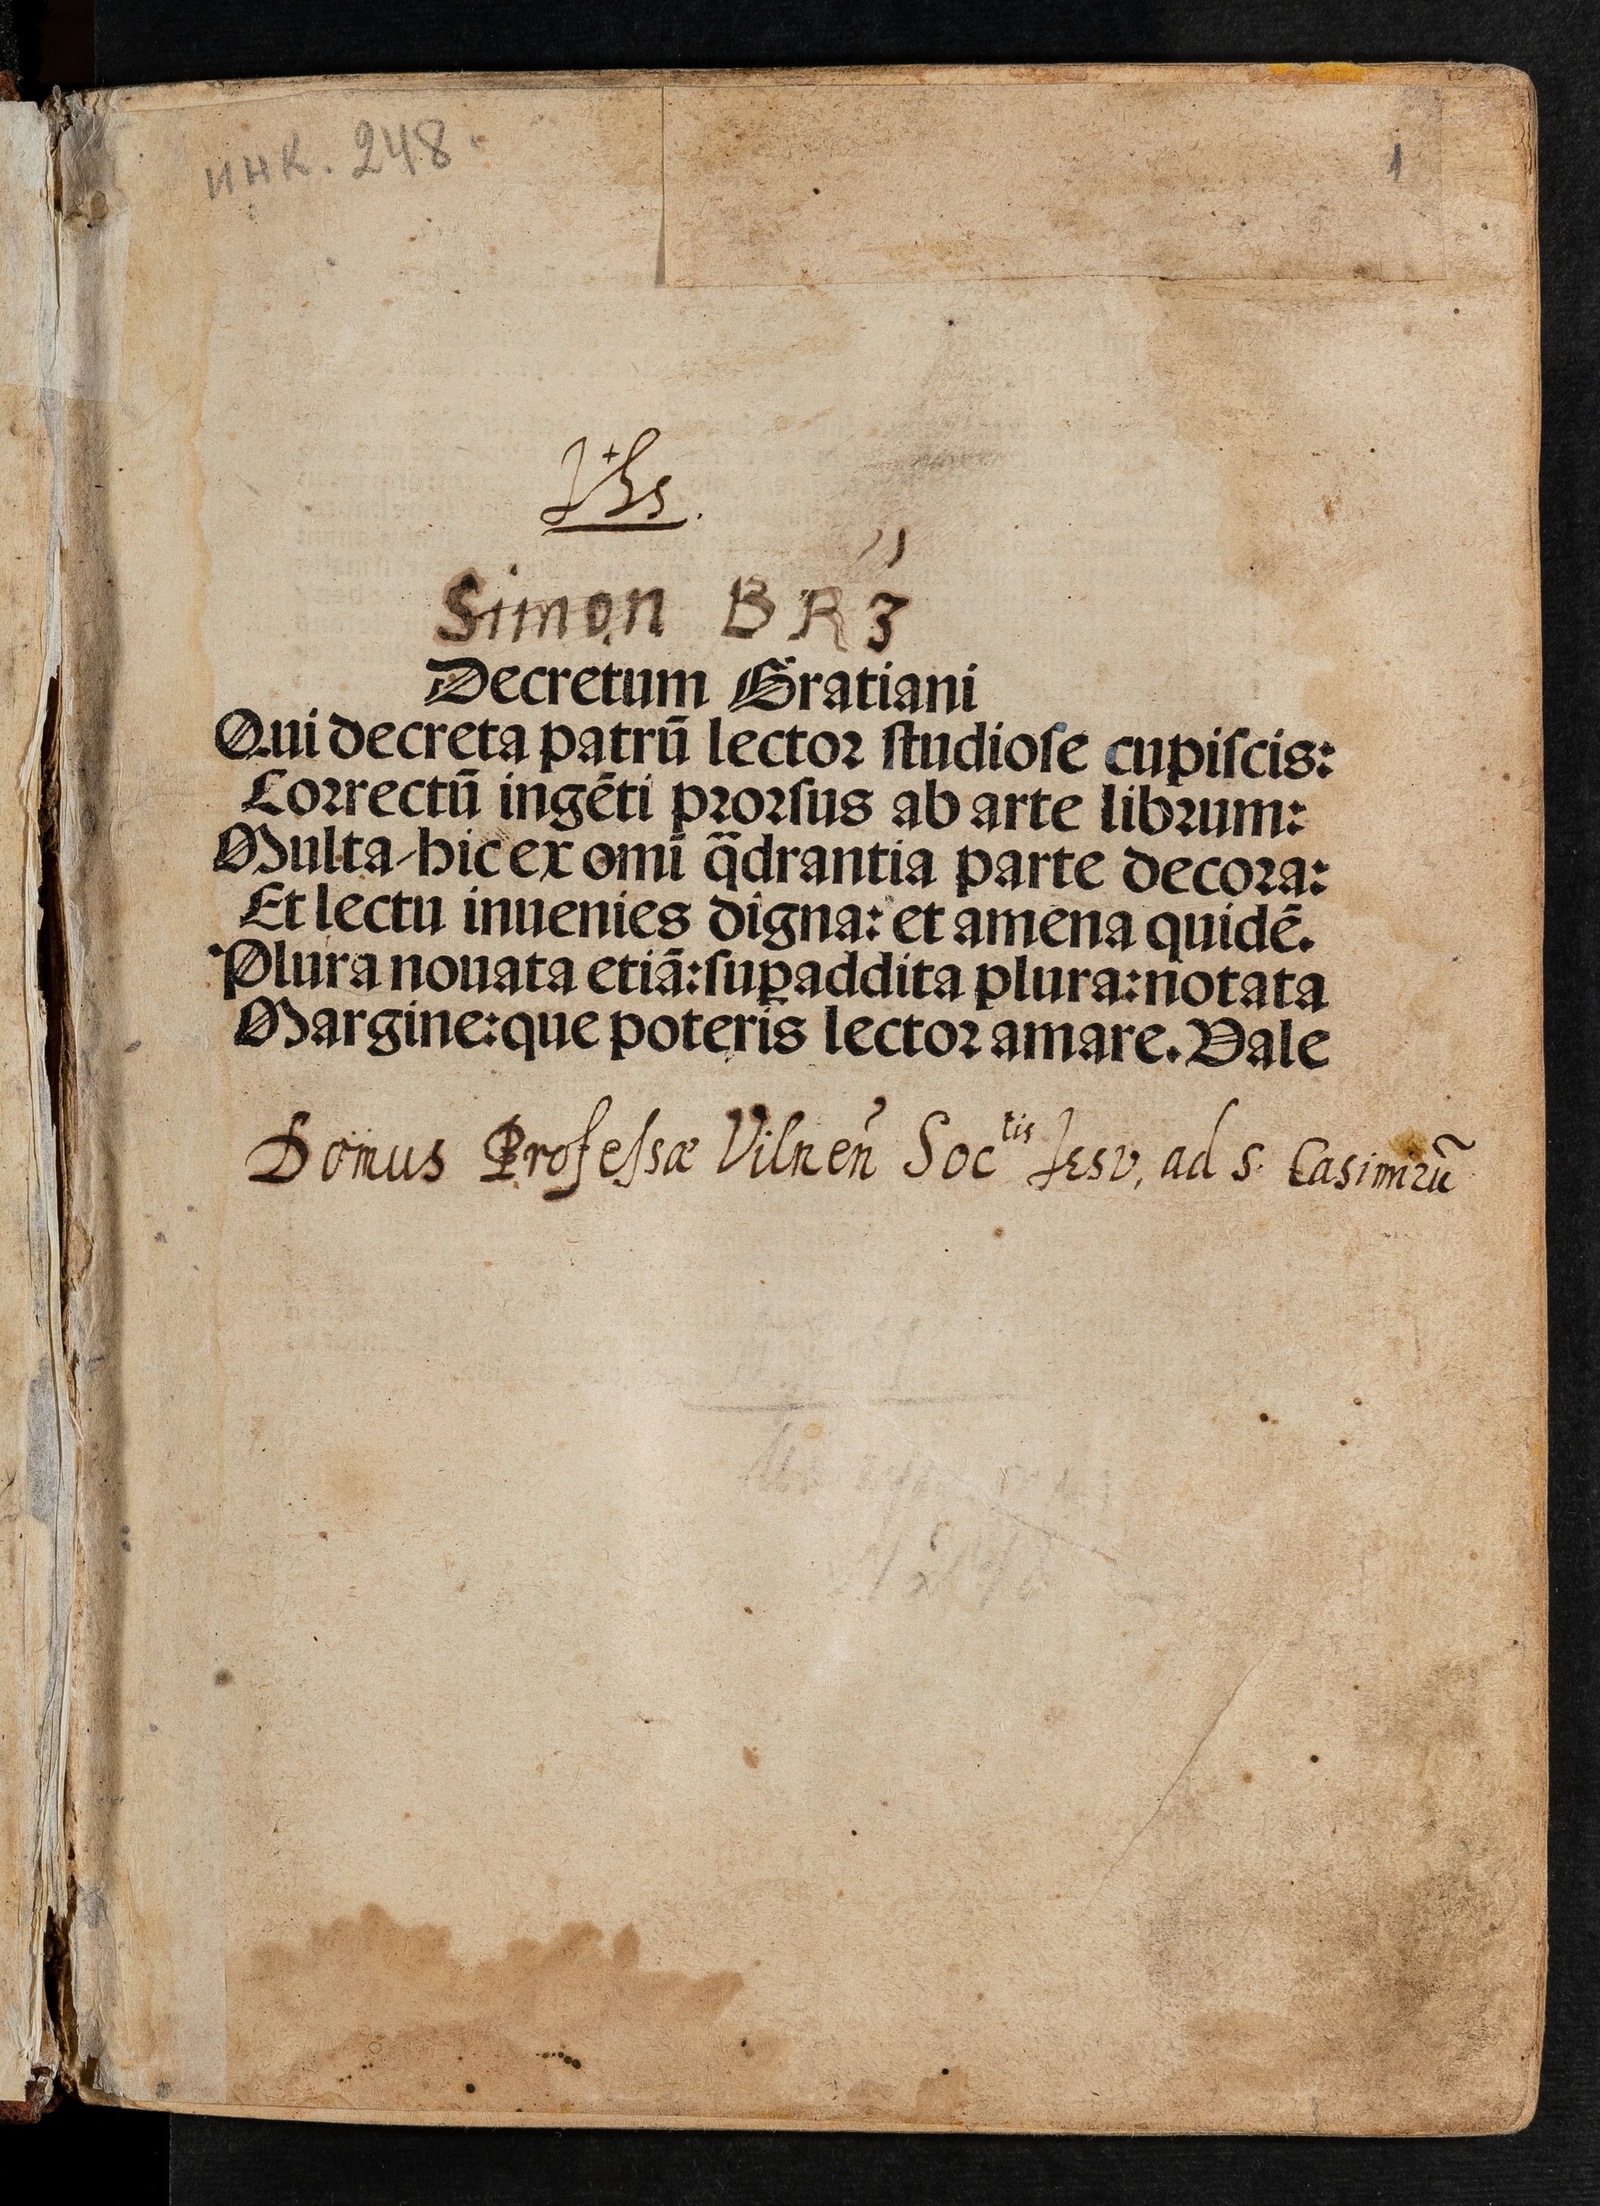 инк. 248.
1
Ihs.
Simon BR3
Decretum Gratiani
Qui decreta patrū lector studiose cupiscis:
Correctū ingēti prorsus ab arte librum:
Multa hic ex omī q̄drantia parte decora:
Et lectu inuenies digna: et amena quidē.
Plura nouata etiā: suꝑaddita plura: notata
Margine: que poteris lector amare. Vale
Domus Professæ Vilneñ Soctis Iesv, ad s. Casimirū